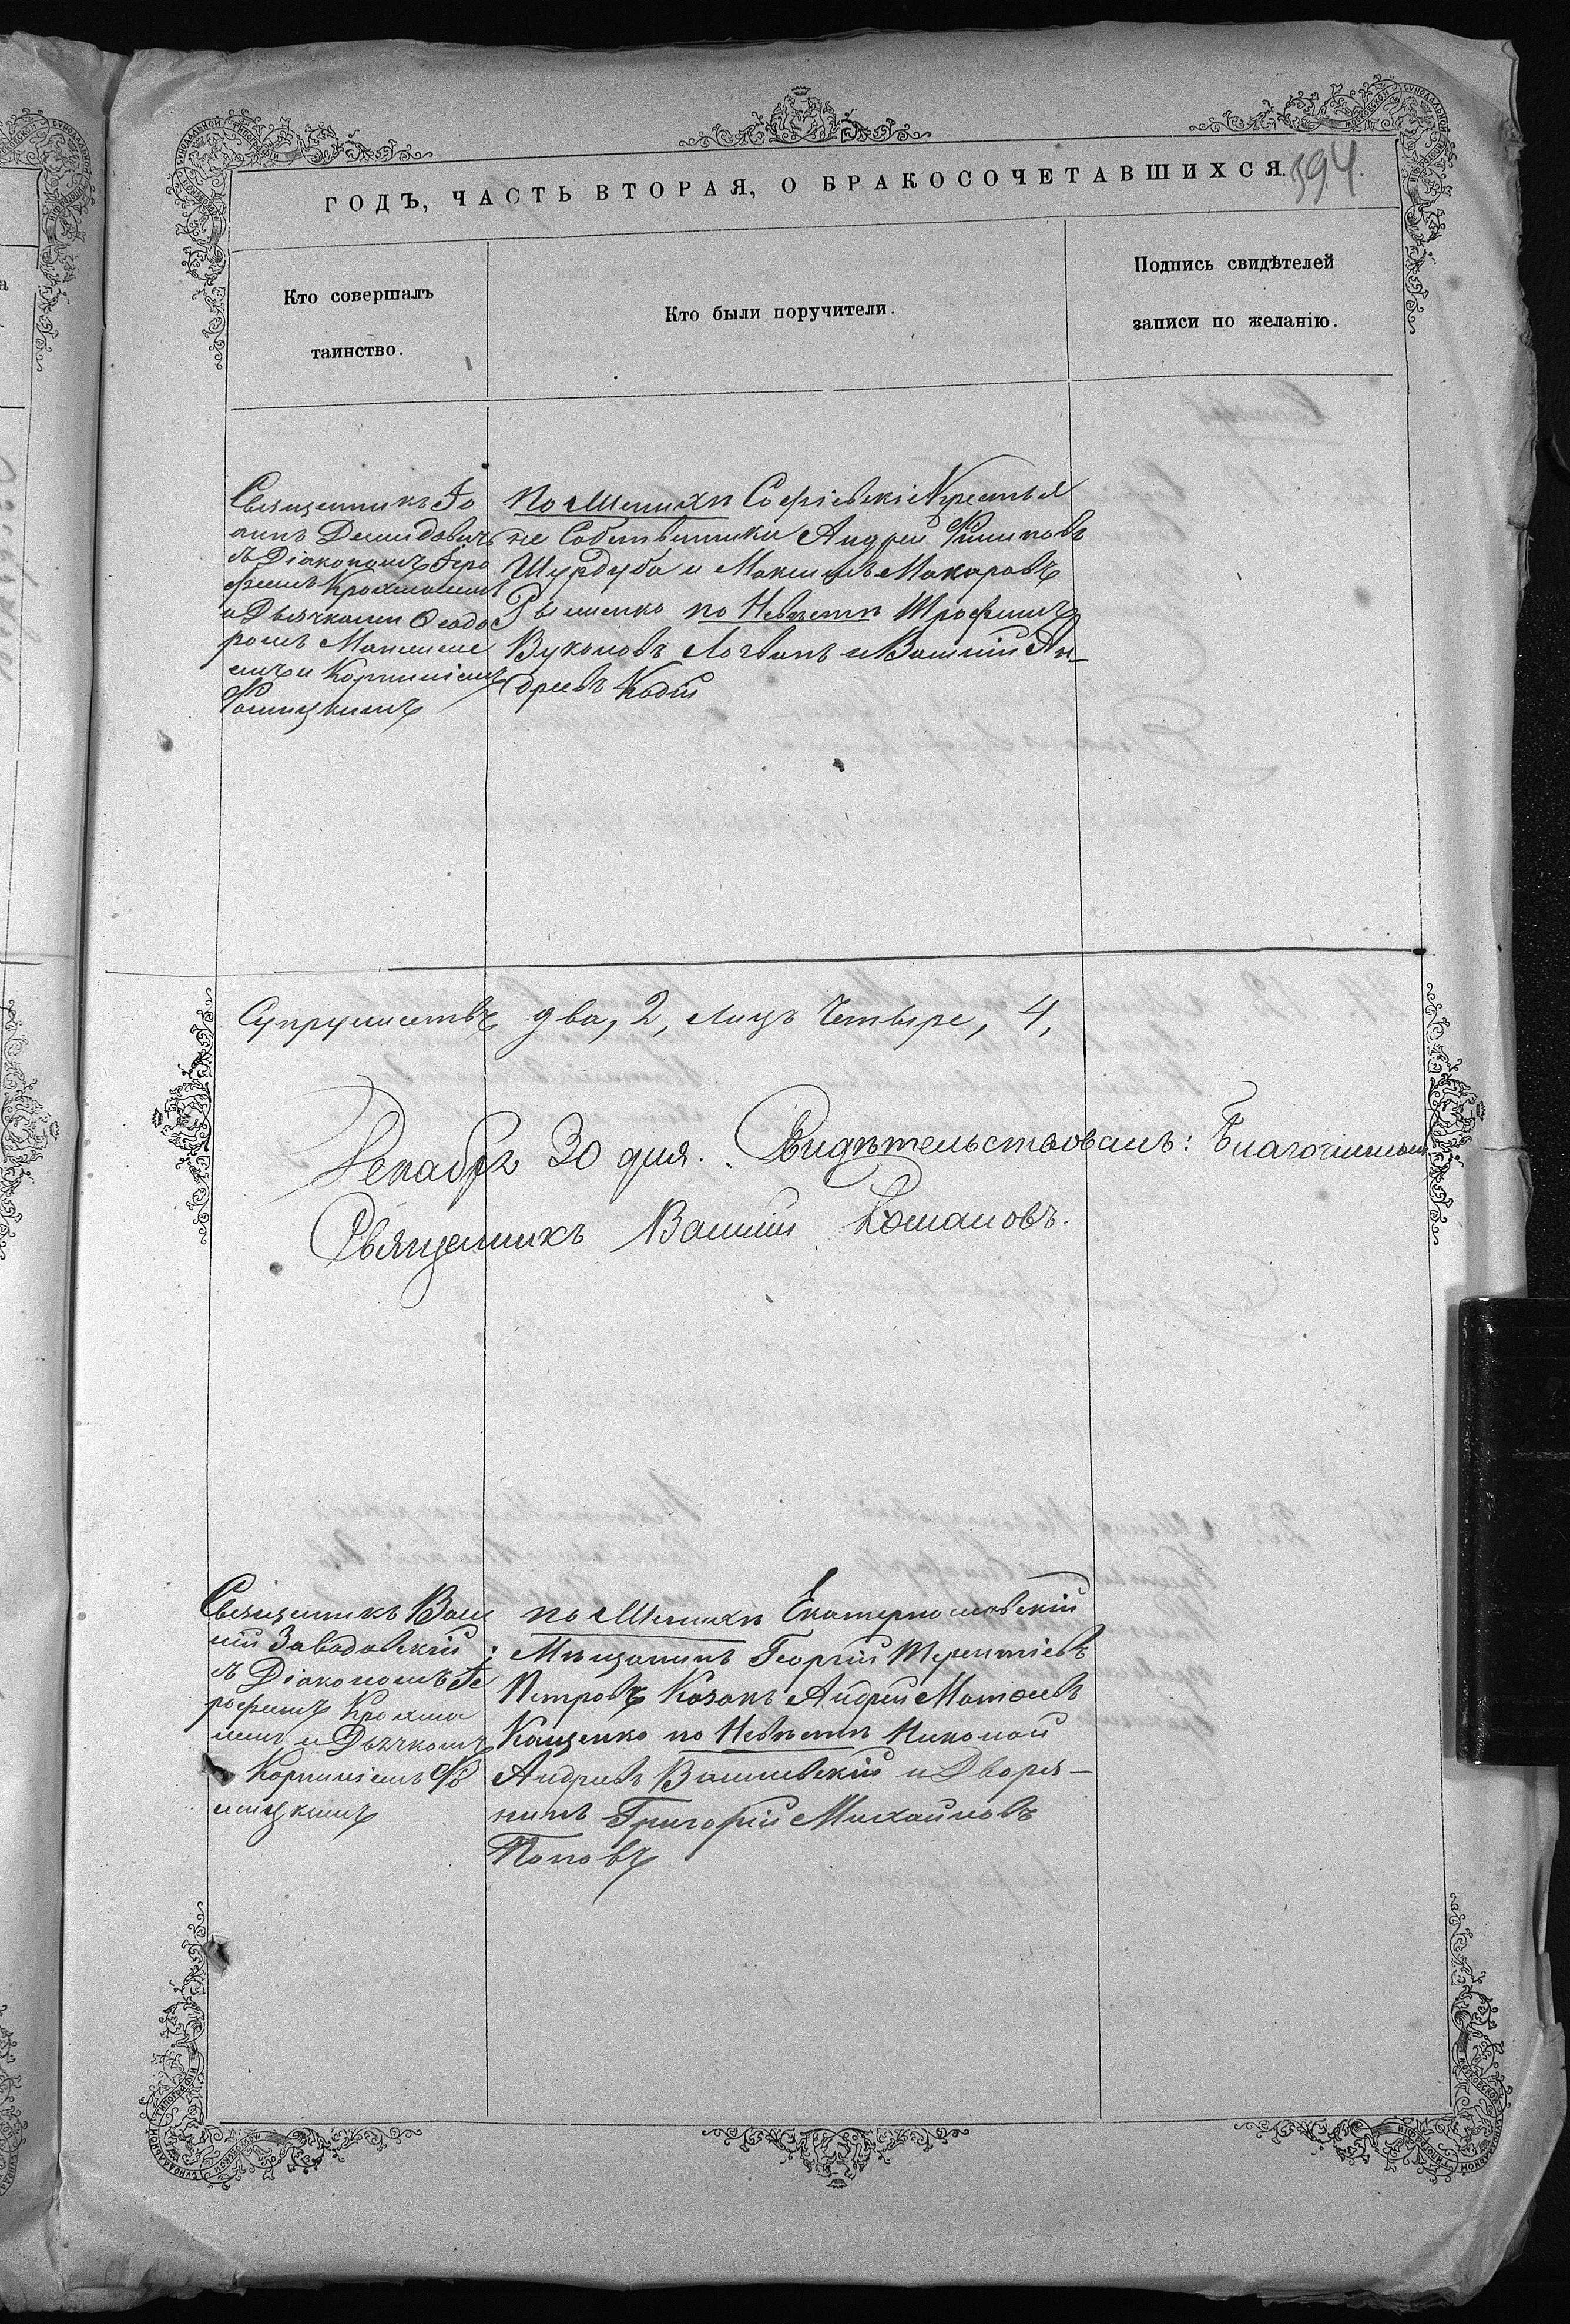 ГОДЪ, ЧАСТЬ ВТОРАЯ, О БРАКОСОЧЕТАВШИХСЯ.
594.
Кто совершалъ
таинство.
Кто были поручители.
Подпись свидѣтелей
записи по желанію.
Священникъ Іо
аннъ Демидовичъ
съ Діакономъ Іеро
феемъ Крохмалем
и Дьячками Ѳеодо
ромъ
емъ и Корниліемъ
Фомицкимъ
По Женихѣ Софіевскіе Крестья
не Собственники Андрей Филиповъ
Шурдуба и Максимъ Макаровъ
по Невѣстѣ Трофимъ
Вуколовъ Логвинъ и Василій Ан-
дреевъ Кодій
Супружествъ два, 2, лицъ Четыре, 4,
Декабря 30 дня. Свидѣтельствовалъ: Благочинный
Священникъ Василій Романовъ.
Священникъ Васи
лій Заводовскій
съ Діакономъ Іе
рофеемъ Крохма
лемъ и Дьячкомъ
Корниліемъ Фо
мицкимъ
по Женихѣ Екатеринославскій
Мѣщанинъ Георгій Терентіевъ
Петровъ Козакъ Андрей Матвѣевъ
Кащенко по Невѣстѣ Николай
Андреевъ Василевскій и Дворя-
нинъ Григорій Михайловъ
Поповъ